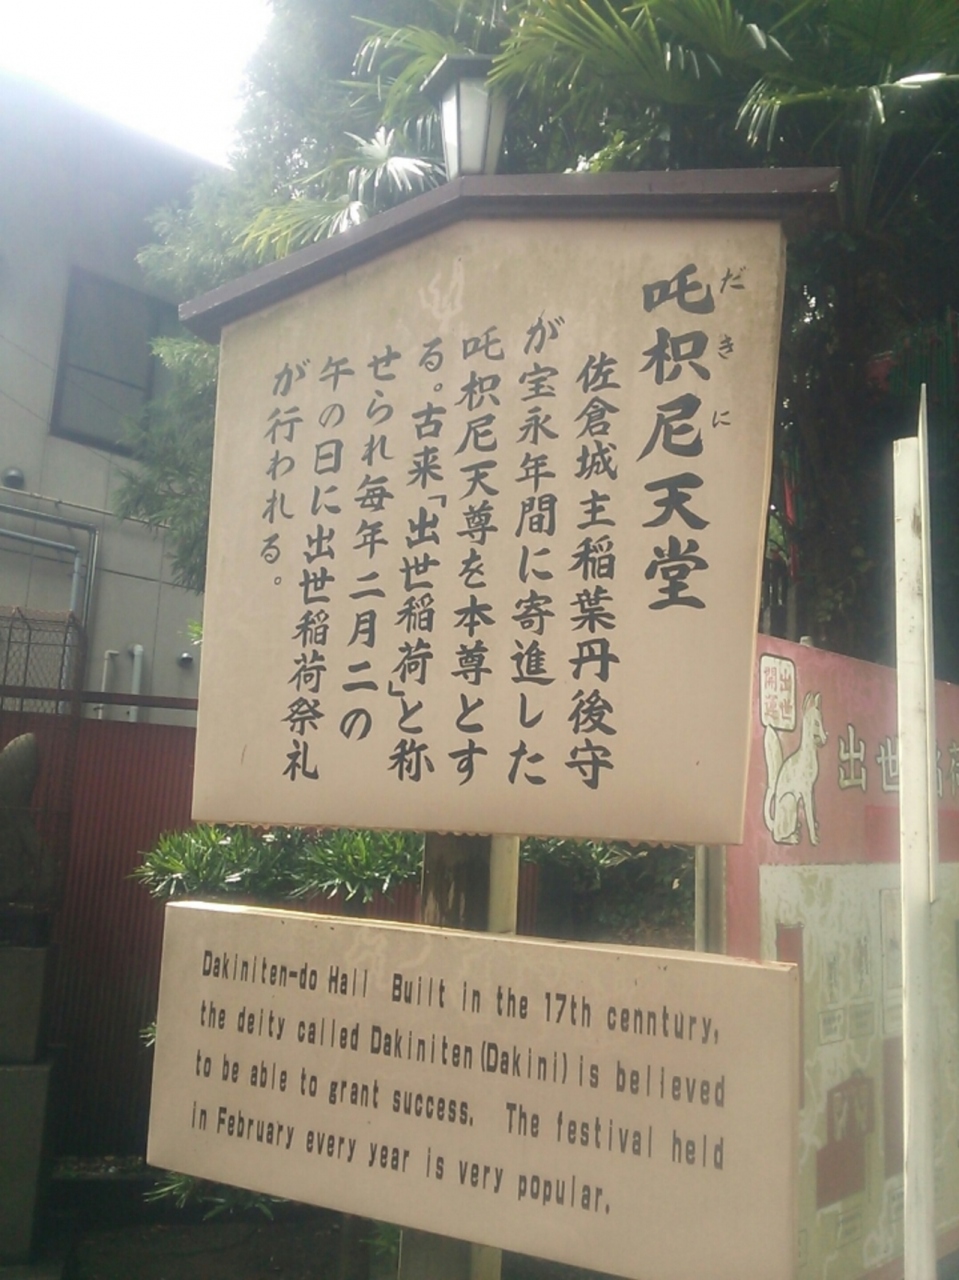 吒枳尼天堂
だきに
佐倉城主稲葉丹後守
が宝永年間に寄進した
吒枳尼天尊を本尊とす
る。古来「出世稲荷」と称
せられ毎年二月二の
午の日に出世稲荷祭礼
が行われる。
Dakiniten-do Hall Built in the 17th cenntury,
the deity called Dakiniten(Dakini)is believed
to be able to grant success. The festival held
in February every year is very popular.
出世
開運
出世